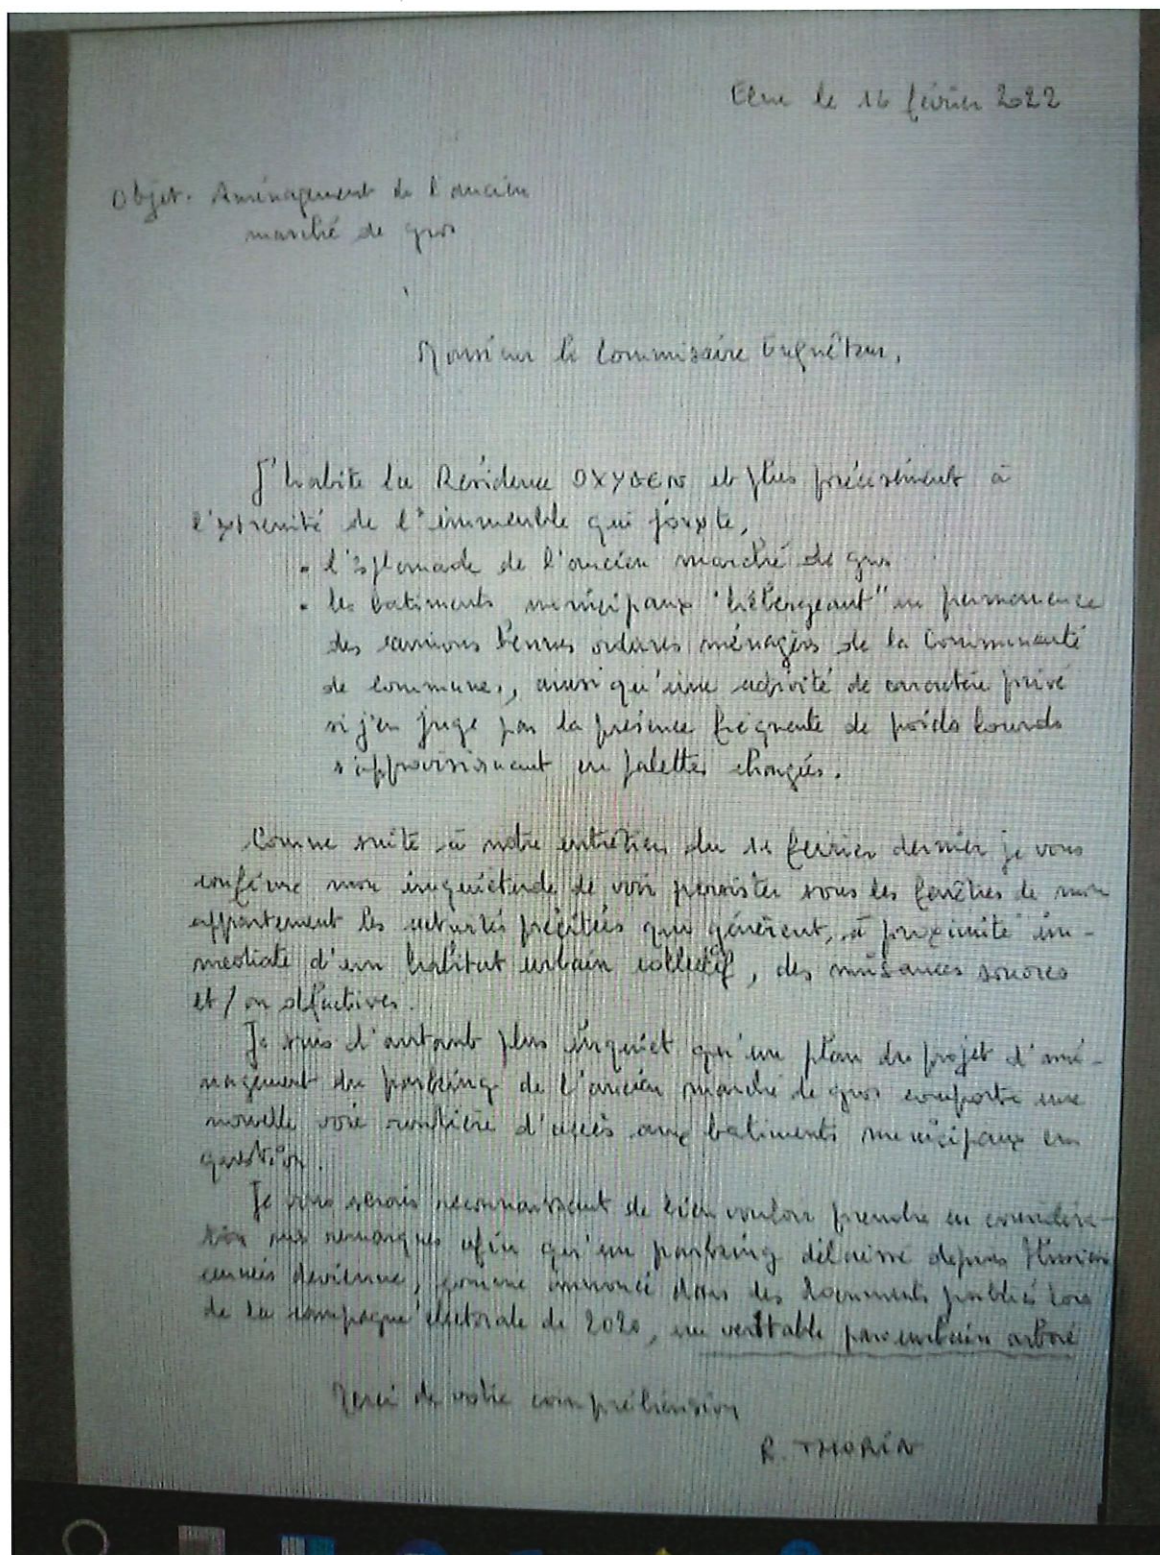 Elne le 16 février 2022
Objet. Aménagement de l'ancien
marché de gros
Monsieur le Commissaire Enquêteur,
J'habite la Résidence OXYGEN et plus précisément à
l'extremité de l'immeuble qui jouxte,
• l'Esplanade de l'ancien marché de gros
• les batiments municipaux "hébergeant" en permanence
des camions bennes ordures ménagères de la Communauté
de Commune, ainsi qu'une activité de caractère privé
si j'en juge par la présence fréquente de poids lourds
s'approvisionnant en palettes chargées.
Comme suite à notre entretien du février dernier je vous
confirme mon inquiétude de voir persister sous les fenêtres de mon
appartement les activités précitées qui génèrent, à proximité im-
mediate d'un habitat urbain collectif, des nuisances sonores
et/ou olfactives.
Je suis d'autant plus inquiet qu'un plan du projet d'amé-
nagement du parking de l'ancien marché de gros comporte une
nouvelle voie routière d'accès aux batiments municipaux en
question.
Je vous serais reconnaissant de bien vouloir prendre en considéra-
tion mes remarques afin qu'un parking délaissé depuis plusieurs
années devienne, comme annoncé dans des documents publiés lors
de la campagne électorale de 2020, un veritable parc urbain arboré
Merci de votre compréhension
R. THORIN